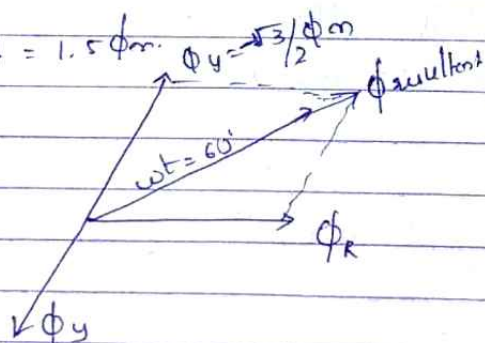 = 1.5 ϕm.
ϕy = -√3/2 ϕm
ϕresultant
ωt = 60°
ϕR
ϕy